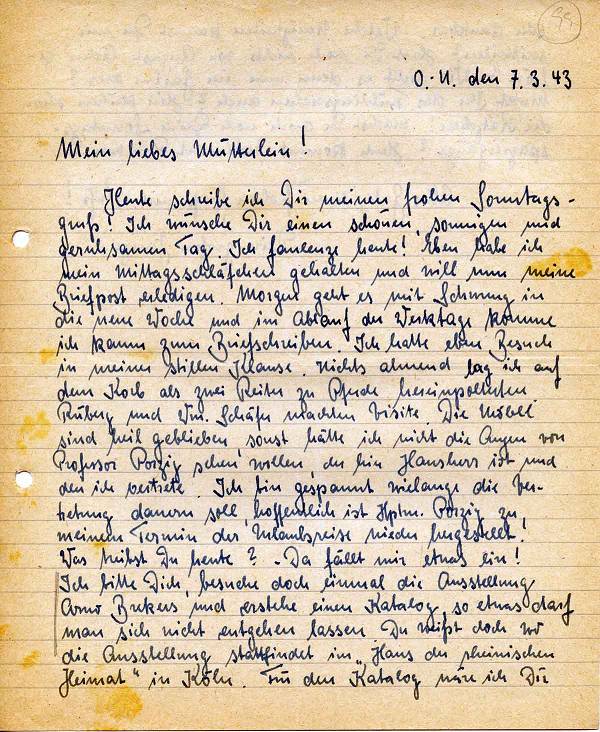 99
O.-U. den 7.3.43
Mein liebes Mütterlein!
Heute schreibe ich Dir meinen frohen Sonntags-
gruß! Ich wünsche Dir einen schönen, sonnigen und
geruhsamen Tag. Ich faulenze heute! Eben habe ich
mein Mittagsschläfchen gehalten und will nun meine
Briefpost erledigen. Morgen geht es mit Schwung in
die neue Woche und im Ablauf der Werktage komme
ich kaum zum Briefschreiben. Ich hatte eben Besuch
in meiner stillen Klause. Nichts ahnend lag ich auf
dem Korb als zwei Reiter zu Pferde hereinpolterten.
Rüberg und Wm. Schäfer machten Visite. Die Möbel
sind heil geblieben, sonst hätte ich nicht die Augen von
Professor Porzig sehen wollen, der hier Hausherr ist und
den ich vertrete. Ich bin gespannt wielange die Ver-
tretung dauern soll, hoffentlich ist Hptm. Porzig zu
meinem Termin der Urlaubsreise wieder hergestellt!
Was treibst Du heute? - Da fällt mir etwas ein!
Ich bitte Dich, besuche doch einmal die Ausstellung
Arno Brekers und erstehe einen Katalog, so etwas darf
man sich nicht entgehen lassen. Du weißt doch wo
die Ausstellung stattfindet im "Haus der rheinischen
Heimat" in Köln. Für den Katalog wäre ich Dir